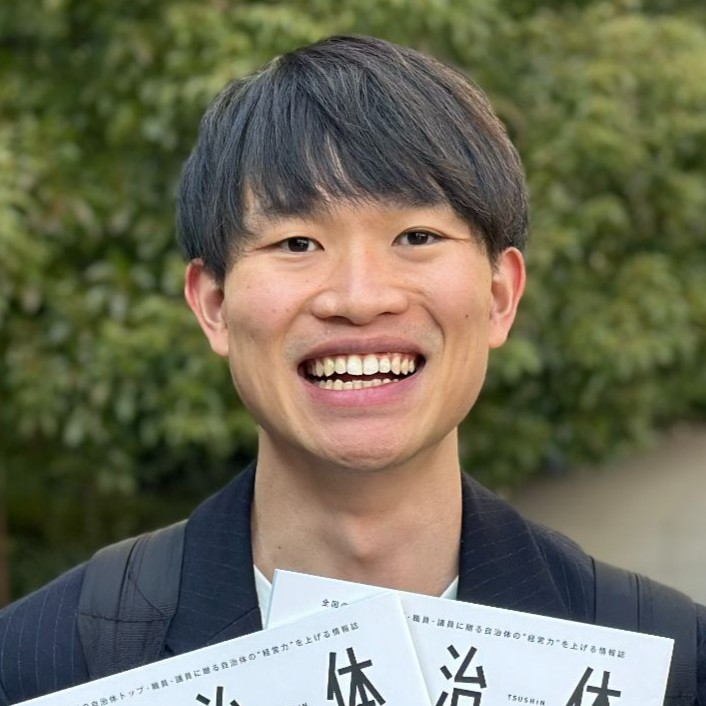 の自治体トップ・職員・議員に贈る自治体の"経営力"を上げる情報誌
治 体
全国の
・職員・議員に贈る自治体の"経営力"を上げる情報誌
治 TSUSHIN 体